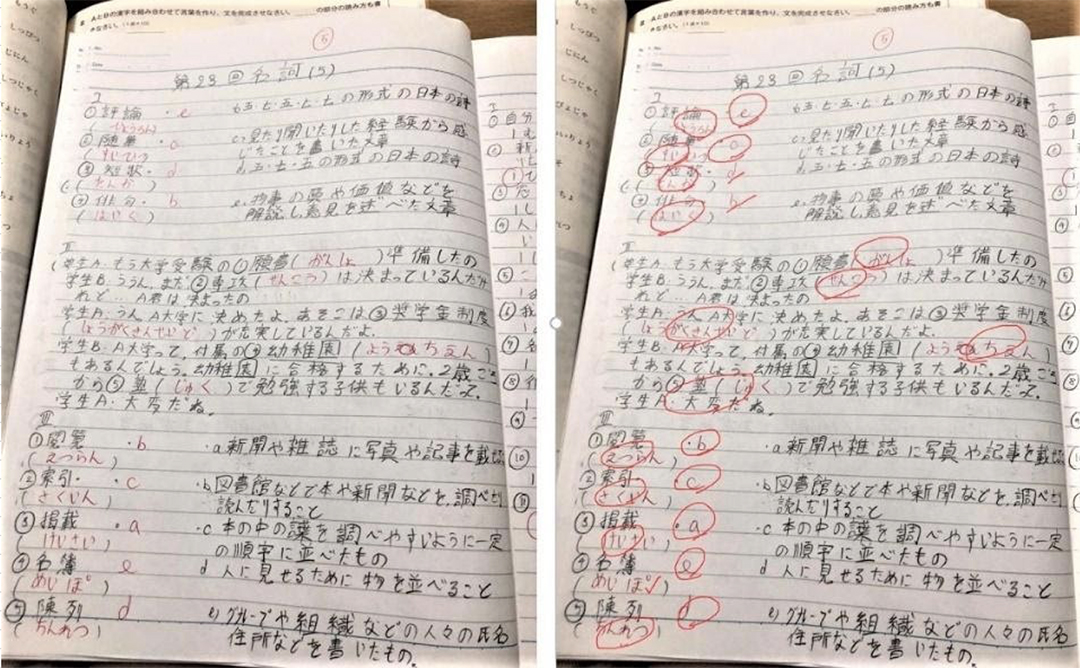 しっぴつ
じにん
しつじゅく
A と B の漢字を組み合わせて言葉を作り、文を完成させなさい。
の部分の読み方も書
きなさい。
⑤
第23回名詞(5)
I
①評論・e
(ひょうろん)
b 五・七・五・七・七の形式の日本の詩
②随筆・a
(ずいひつ)
c 見たり聞いたりした経験から感
じたことを書いた文章
③短歌・d
(たんか)
d 五・七・五の形式の日本の詩
④俳句・b
(はいく)
e. 物事の善や価値などを
解説し意見を述べた文章
II
学生A. もう大学受験の①願書(がんしょ)準備したの
学生B. ううん、まだ。②専攻(せんこう)は決まっているんだけ
れど… A君は決まったの
学生A. うん A大学に決めたよ。あそこは③奨学金制度
(しょうがくきんせいど)が充実しているんだよ。
学生B. A大学って、付属の④幼稚園(ようちえん)
もあるんでしょう。幼稚園に合格するために、2歳ごろ
から⑤塾(じゅく)で勉強する子供もいるんだって。
学生A. 大変だね。
III
①閲覧・b
(えつらん)
・a 新聞や雑誌に写真や記事を載せ
②索引・c
(さくいん)
・b 図書館などで本や新聞などを、調べたり
読んだりすること
③掲載・a
(けいさい)
・c 本の中の語を調べやすいように一定
の順字に並べたもの
④名簿 e
(めいぼ)
d 人に見せるために物を並べること
⑤陳列 d
(ちんれつ)
e) グループや組織などの人々の氏名
住所などを書いたもの。
⑤
第23回名詞(5)
I
①評論 e
b 五・七・五・七・七の形式の日本の詩
②随筆 a
c 見たり聞いたりした経験から感
じたことを書いた文章
③短歌・d
d 五・七・五の形式の日本の詩
④俳句・b
(はいく)
e. 物事の善や価値などを
解説し意見を述べた文章
II
学生A. もう大学受験の①願書(がんしょ)準備したの
学生B. ううん、まだ。②専攻(せんこう)は決まっているんだけ
れど… A君は決まったの
学生A. うん A大学に決めたよ。あそこは③奨学金制度
(しょうがくきんせいど)が充実しているんだよ。
学生B. A大学って、付属の④幼稚園(ようちえん)
もあるんでしょう。幼稚園に合格するために、2歳ごろ
から⑤塾(じゅく)で勉強する子供もいるんだって。
学生A. 大変だね。
III
①閲覧・b
(えつらん)
・a 新聞や雑誌に写真や記事を載せ
②索引・c
(さくいん)
・b 図書館などで本や新聞などを、調べたり
読んだりすること
③掲載・a
(けいさい)
・c 本の中の語を調べやすいように一定
の順字に並べたもの
④名簿 e
(めいぼ)
d 人に見せるために物を並べること
⑤陳列 d
(ちんれつ)
e) グループや組織などの人々の氏名
住所などを書いたもの。